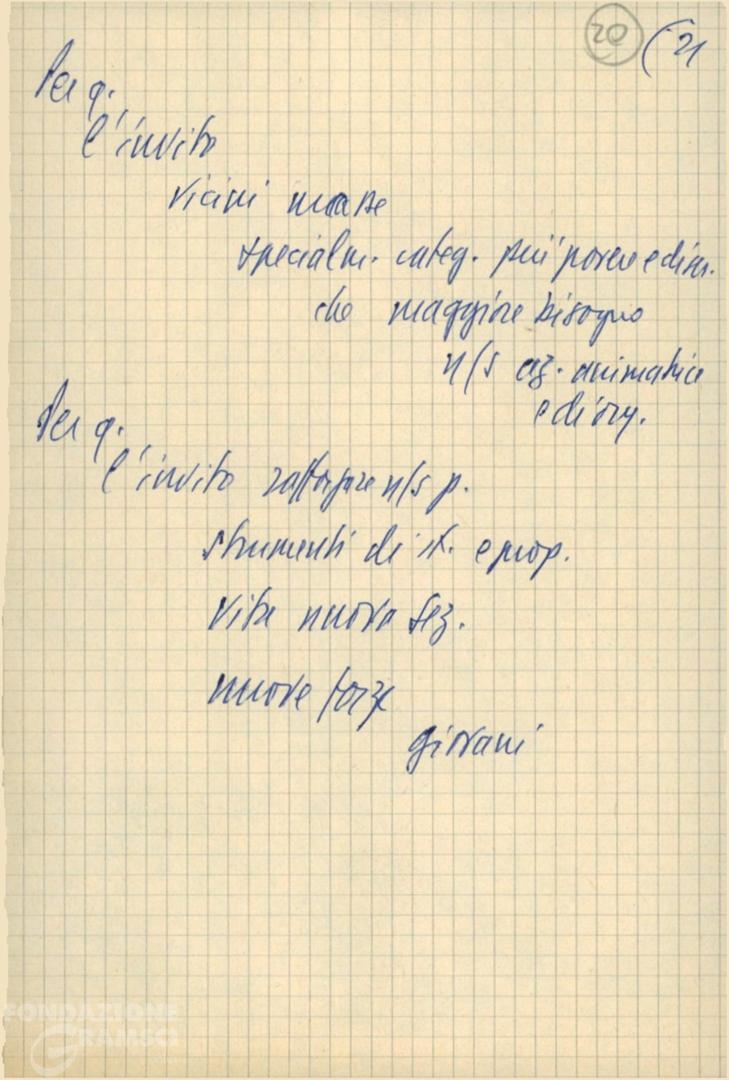 20 (21
Per q.
l'invito
vicini masse
specialm. categ. più povere e disr.
che maggiore bisogno
n/s az. animatrice
e di org.
Per q.
l'invito rafforzare n/s p.
strumenti di st. e prop.
vita nuova sez.
nuove forze
giovani
FONDAZIONE
GRAMSCI